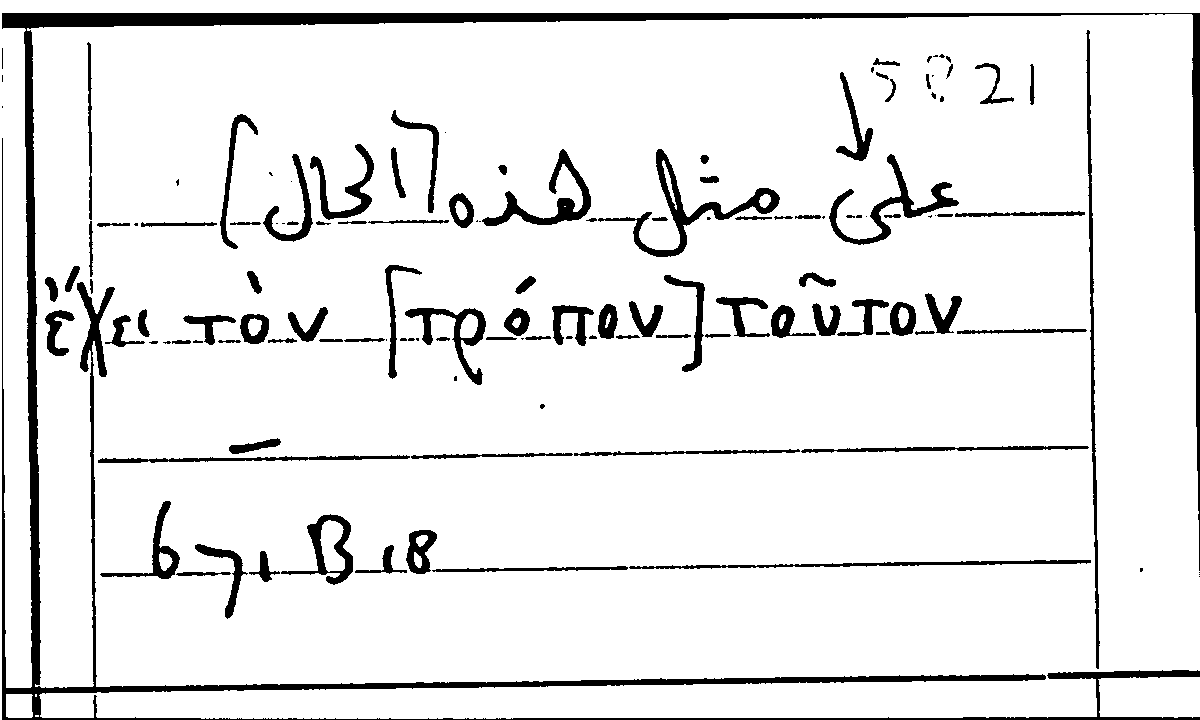 5821
على مثل هذه [الحال]
ἔχει τὸν [τρόπον] τοῦτον
671 B 18